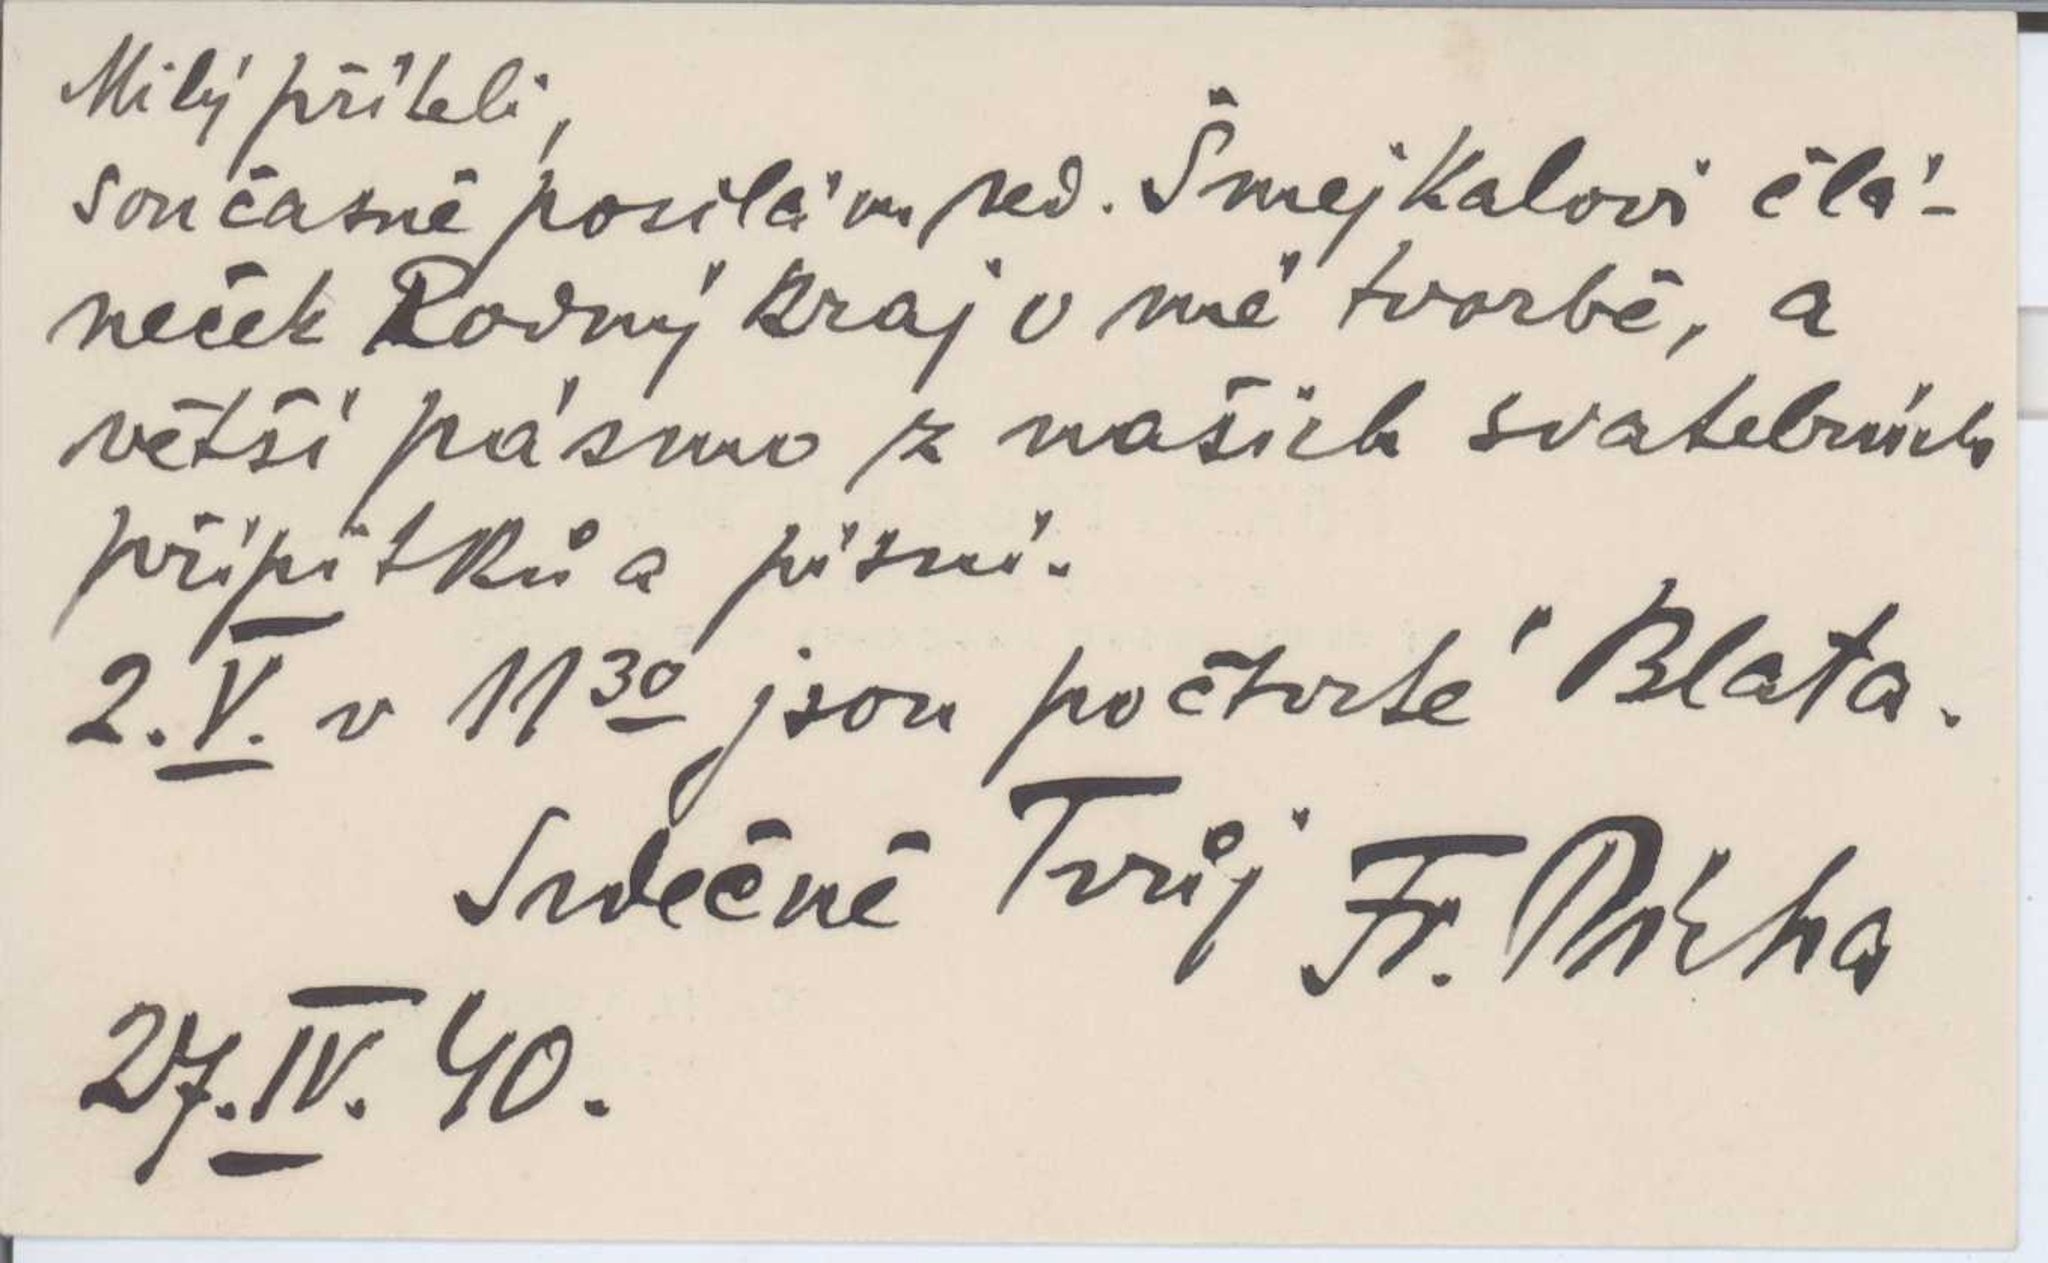 Milý příteli,
současně posílám red. Šmejkalovi člá-
neček Rodný kraj v mé tvorbě, a
větší pásmo z našich svatebních
přípitků a písní.
2. V. v 11 30 jsou počtvrté Blata.
Srdečně Tvůj Fr. Pícha
27. IV. 40.